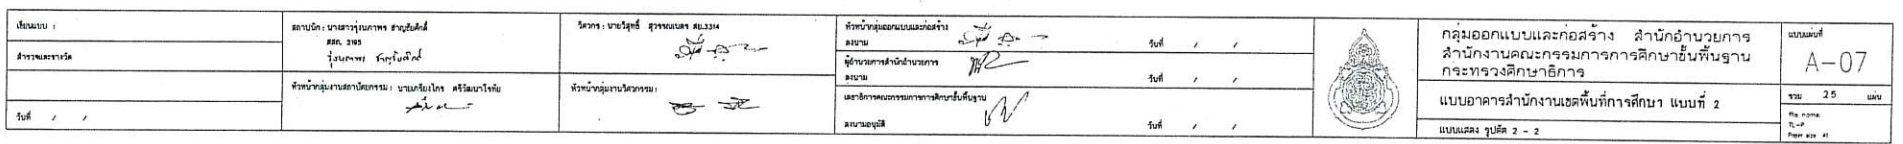 เขียนแบบ :
สำรวจและรางวัด
วันที่ / /
สถาปนิก : นางสาวรุ่งนภาพร ชาญชัยศักดิ์
สสถ. 3195
รุ่งนภาพร ชาญชัยศักดิ์
หัวหน้ากลุ่มงานสถาปัตยกรรม : นายเกรียงไกร ศรีวัฒนาโรทัย
วิศวกร : นายวิสุทธิ์ สุวรรณเนตร สย.3314
หัวหน้ากลุ่มงานวิศวกรรม :
หัวหน้ากลุ่มออกแบบและก่อสร้าง
ลงนาม วันที่ / /
ผู้อำนวยการสำนักอำนวยการ
ลงนาม วันที่ / /
เลขาธิการคณะกรรมการการศึกษาขั้นพื้นฐาน
ลงนามอนุมัติ วันที่ / /
กลุ่มออกแบบและก่อสร้าง สำนักอำนวยการ
สำนักงานคณะกรรมการการศึกษาขั้นพื้นฐาน
กระทรวงศึกษาธิการ
แบบอาคารสำนักงานเขตพื้นที่การศึกษา แบบที่ 2
แบบแสดง รูปตัด 2 - 2
แบบแผ่นที่
A-07
รวม 25 แผ่น
file name:
TL-P
Paper size A1